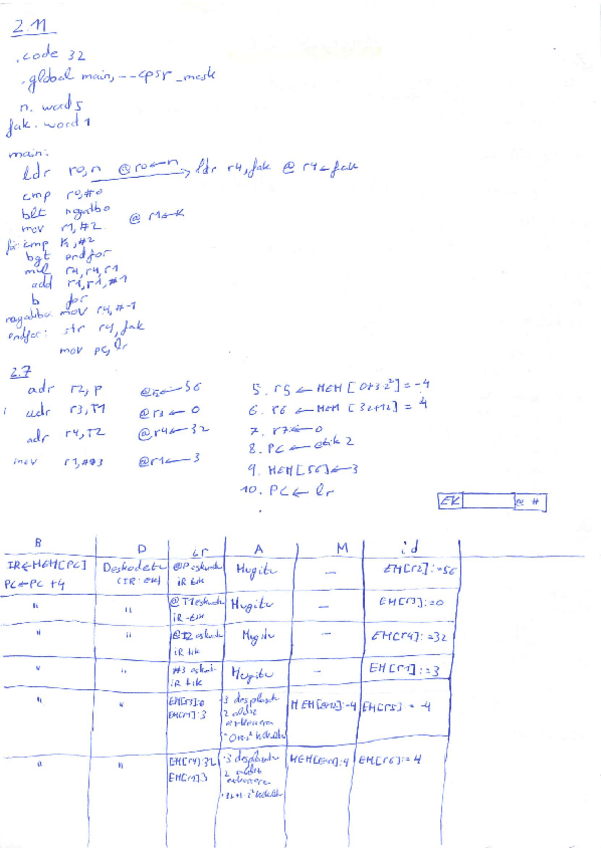 2.11
.code 32
.global main, __cpsr_mask
n. word 5
fak. word 1
main:
ldr r0,n @r0←n ldr r4,fak @ r4←fak
cmp r0,#0
blt negatibo
mov r1,#2 @ r1←K
for: cmp K,#2
bgt endfor
mul r4,r4,r1
add r1,r1,#1
b for
negatibo: mov r4,#-1
endfor: str r4,fak
mov pc,lr
2.7
adr r2,P @r2←56
adr r3,T1 @r3←0
adr r4,T2 @r4←32
mov r1,#3 @r1←3
5. r5 ← MEM[0+3·2²]=-4
6. r6 ← MEM[32+12]=4
7. r7←0
8. PC← etik 2
9. MEM[56]←3
10. PC← lr
EK @ #
B D Lr A M id
IR←MEM[PC] Deskodetu @P eskuratu Mugitu — EM[r2]:=56
PC←PC+4 (IR:ek) IR tik
" " @T1 eskuratu Mugitu — EM[r3]:=0
IR-tik
" " @T2 eskuratu Mugitu — EM[r4]:=32
IR tik
" " #3 Mugitu — EM[r1]:=3
IR tik
" " EM[r3]:0 3 MEM :-4 EM[r5] = -4
EM[r1]:3 2
" " EM[r4]:32 3 MEM :4 EM[r6]:=4
EM[r1]:3 2